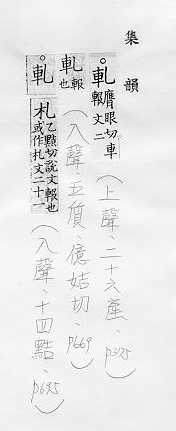 集韻
○軋膺眼切車報文二(上聲、二十六產、p375)
軋報也(入聲、五質、億姞切、p669)
○軋札乙黠切說文報也或作札文二十一(入聲、十四黠、p695)